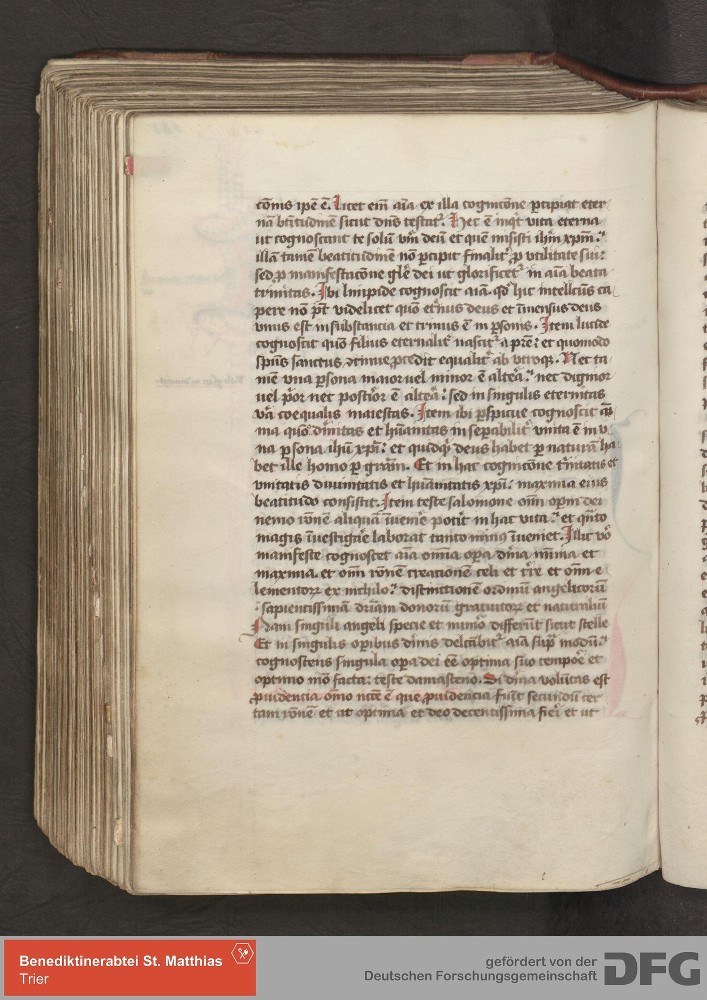 cōnis ip̄e ē. Licet em̄ aīa ex illa cognicōne ꝑcipiat eter
nā btītudinē sicut dn̄s testatᷣ. Hec ē inq̇t vita eterna
ut cognoscant te solū vm̄ deū et quē misisti ihm̄ xpm̄.
illā tamē beatitudinē nō ꝑcipit finalitᷣ ꝓ vtilitate sui:
sed ꝓ manifestacōne gl̄e dei ut glorificetᷣ in aīa beata
trinitas. Ibi limpide cognoscit aīa. qd̄ hic intellcūs ca
pere nō pt̄ videlicet quō et̄nus deus et īmensus deus
vnus est in substancia et trinus ē in ꝑsonis. Item lucide
cognoscit quō filius eternalitᷣ nascitᷣ a pr̄e: et quomodo
spūs sanctus ꝓcedit equalitᷣ ab vtroqꝫ. Nec ta
mē vna ꝑsona maior uel minor ē altēa: nec dignior
uel p̄or nec postīor ē altēa: sed in singulis eternitas
vā coequalis maiestas. Item ibi ꝑspicue cognoscit aī
ma quō diīnitas et hūanitas inseꝑabilitᷣ vnita ē in v
na ꝑsona ihū xpī: et quidq̇d deus habet ꝑ naturā ha
bet ille homo ꝑ grām. Et in hac cognicōne t̄nitatis et
vnitatis diuinitatis et hūanitatis xpī: maxima eius
beatitudo consistit. Item teste salomone om̄ oꝑm dei
nemo rōnē aliquā īuenīe potīt in hac vita: et qn̄to
magis īuestigāe laborat tanto minꝰ īueniet. Illic vō
manifeste cognoscet aīa om̄ia oꝑa diīna mīnima et
maxima. et om̄ rōnē creationē celi et t̄re et om̄ e
lementoꝝ ex nichilo: distinctionē ordinū angelicorū
sapientissimā donorū gratuitoꝝ et naturaliū
Nam singuli angeli specie et differūt sicut stelle
Et in singulis oꝑibus diīnis delc̄abitᷣ aīa supᷣ modū:
cognoscens singula oꝑa dei eē optima suo tempoē et
optimo mō facta: teste damasceno. Si diīna volūtas est
ꝓuidencia om̄o nc̄cē ē que ꝓuidencia fiūt secundū cer
tam rōnē et ut optima et deo decentissima fierī et ut
Benediktinerabtei St. Matthias
Trier
gefördert von der
Deutschen Forschungsgemeinschaft
DFG